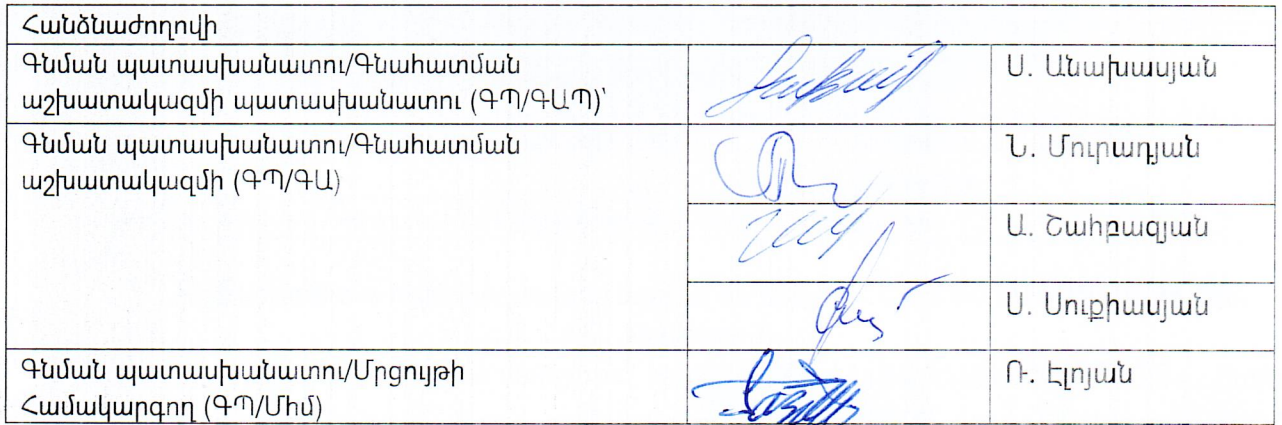 Հանձնաժողովի
Գնման պատասխանատու/Գնահատման
աշխատակազմի պատասխանատու (ԳՊ/ԳԱՊ)՝
Ս. Անախասյան
Գնման պատասխանատու/Գնահատման
աշխատակազմի (ԳՊ/ԳԱ)
Ն. Մուրադյան
Ա. Շահբազյան
Ս. Սուքիասյան
Գնման պատասխանատու/Մրցույթի
Համակարգող (ԳՊ/Մհմ)
Ռ. Էլոյան